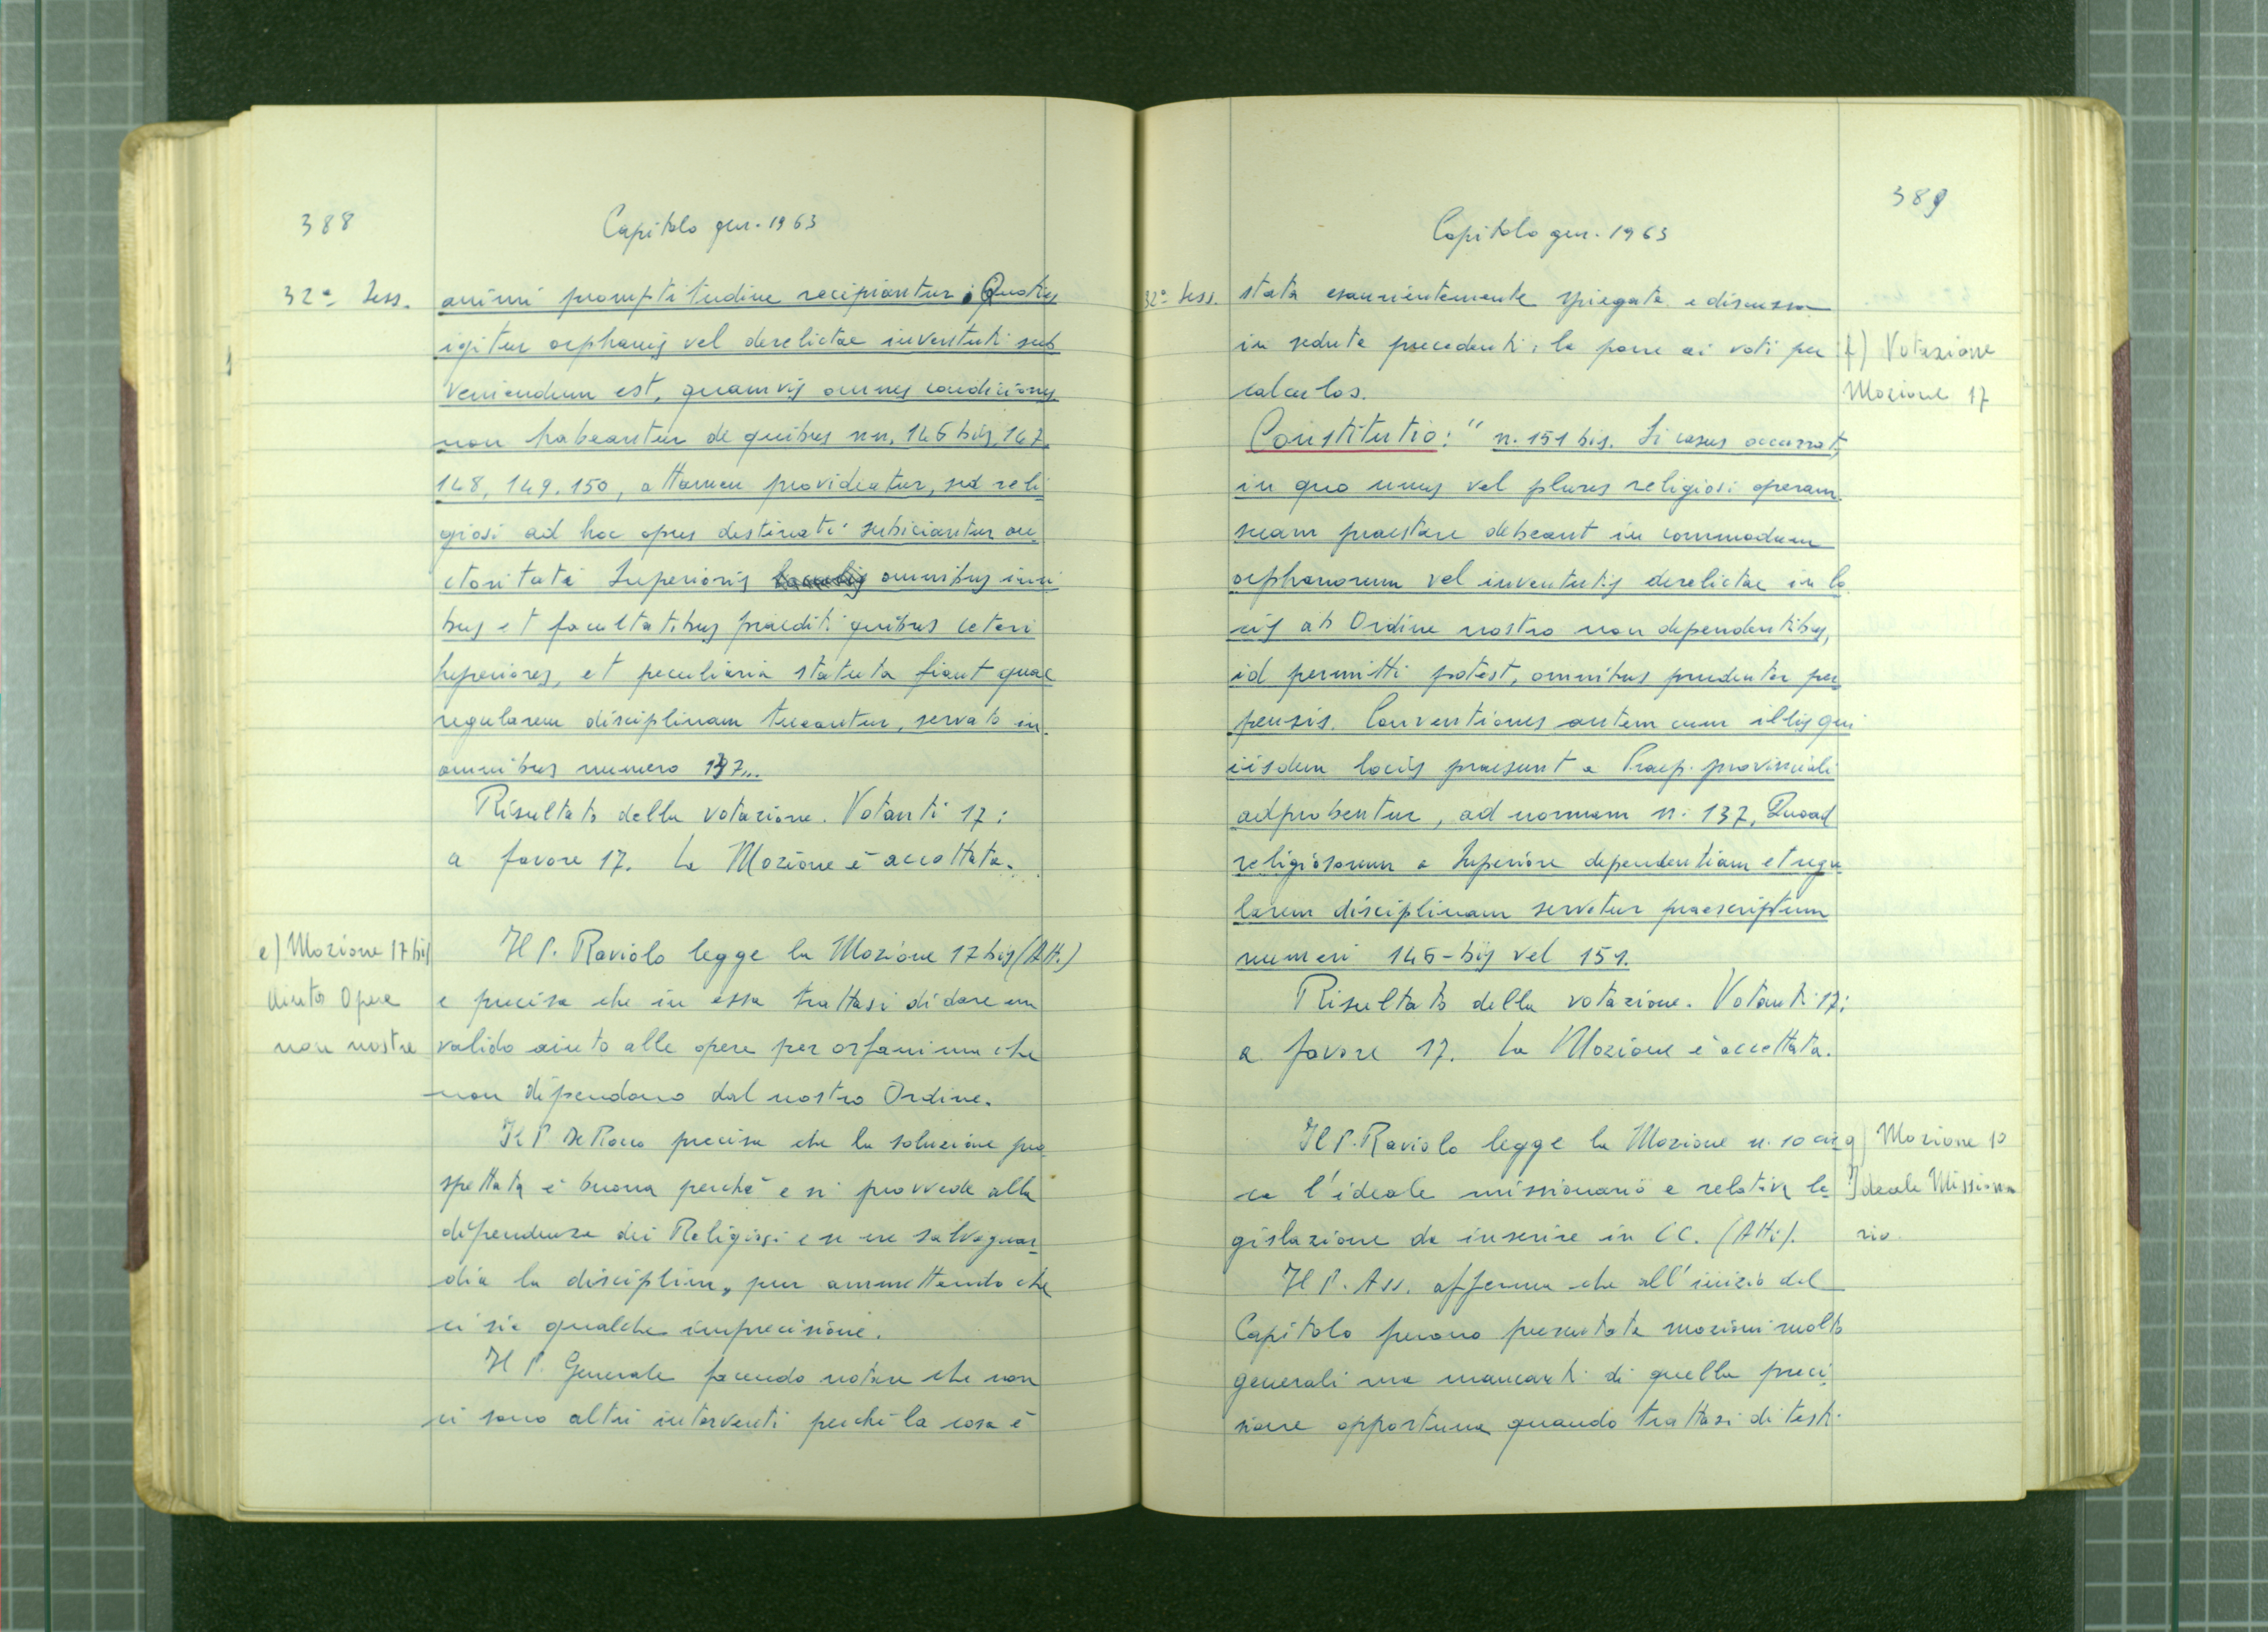 388
Capitolo gen. 1963
32ª Sess.
animi promptitudine recipiantur. Quoties
igitur orphanis vel derelictae iuventuti sub
veniendum est, quamvis omnes condiciones
non habeantur de quibus nn. 146 bis, 147.
148, 149, 150, attamen provideatur, sed reli
giosi ad hoc opus destinati subiciantur au
ctoritati Superioris omnibus iuri
bus et facultatibus praediti quibus ceteri
Superiores, et peculiaria statuta fiant quae
regularem disciplinam tueantur, servato in
omnibus numero 137...
Risultato della votazione. Votanti 17:
a favore 17. La Mozione è accettata.
e) Mozione 17 bis
Aiuto Opere
non nostre
Il P. Raviolo legge la Mozione 17 bis (Att.)
e precisa che in essa trattasi di dare un
valido aiuto alle opere per orfani ma che
non dipendono dal nostro Ordine.
Il P. De Rocco precisa che la soluzione pro
spettata è buona perché e si provvede alla
dipendenza dei Religiosi e se ne salvaguar
dia la disciplina, pur ammettendo che
ci sia qualche imprecisione.
Il P. Generale facendo notare che non
ci sono altri interventi perché la cosa è
389
Capitolo gen. 1963
32ª Sess.
stata esaurientemente spiegata e discussa
in sedute precedenti, la pone ai voti per
calculos.
f) Votazione
Mozione 17
Constitutio: " n. 151 bis. Si casus occurrat,
in quo unus vel plures religiosi operam
suam praestare debeant in commodum
orphanorum vel iuventutis derelictae in lo
cis ab Ordine nostro non dependentibus,
id permitti potest, omnibus prudenter per
pensis. Conventiones autem cum illis qui
iisdem locis praesunt a Praep. provinciali
adprobentur, ad normam n. 137. Quoad
religiosorum a Superiore dependentiam et regu
larem disciplinam servetur praescriptum
numeri 146-bis vel 151.
Risultato della votazione. Votanti 17:
a favore 17. La Mozione è accettata.
Il P. Raviolo legge la Mozione n. 10 cir
ca l'ideale missionario e relativa le
gislazione da inserire in CC. (Atti).
g) Mozione 10
Ideale Missiona
rio.
Il P. Ass. afferma che all'inizio del
Capitolo furono presentate mozioni molto
generali ma mancanti di quella preci
sione opportuna quando trattasi di testi